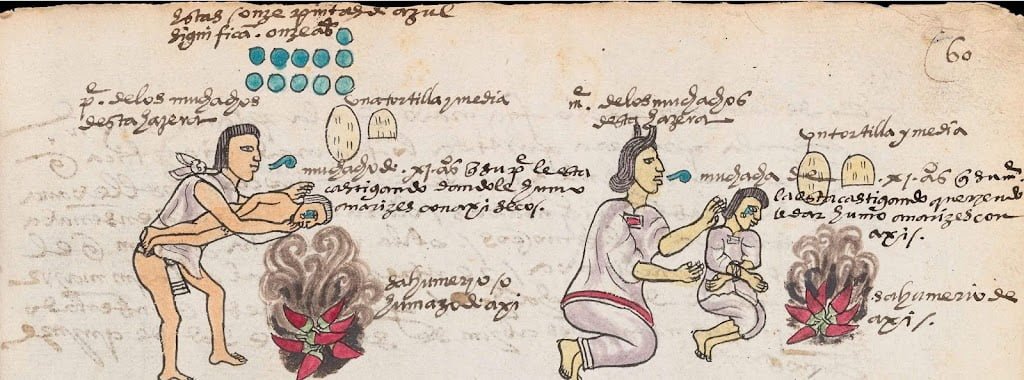 estas onze pintas de azul
significā. onze aºs
60
pᵉ. de los muchachos
desta hazera
una tortilla y media
muchacho de .xi. aºs q̄ su pᵉ. le esta
castigando dandole humo
a narizes con axi secos.
sahumerio / o
humazo de axi
mᵉ. de los muchachos
desta hazera
un tortilla y media
muchacha de .xi. aºs q̄ su mᵉ.
la esta castigando queriendo
le dar humo a narizes con
axis.
sahumerio de
axis.